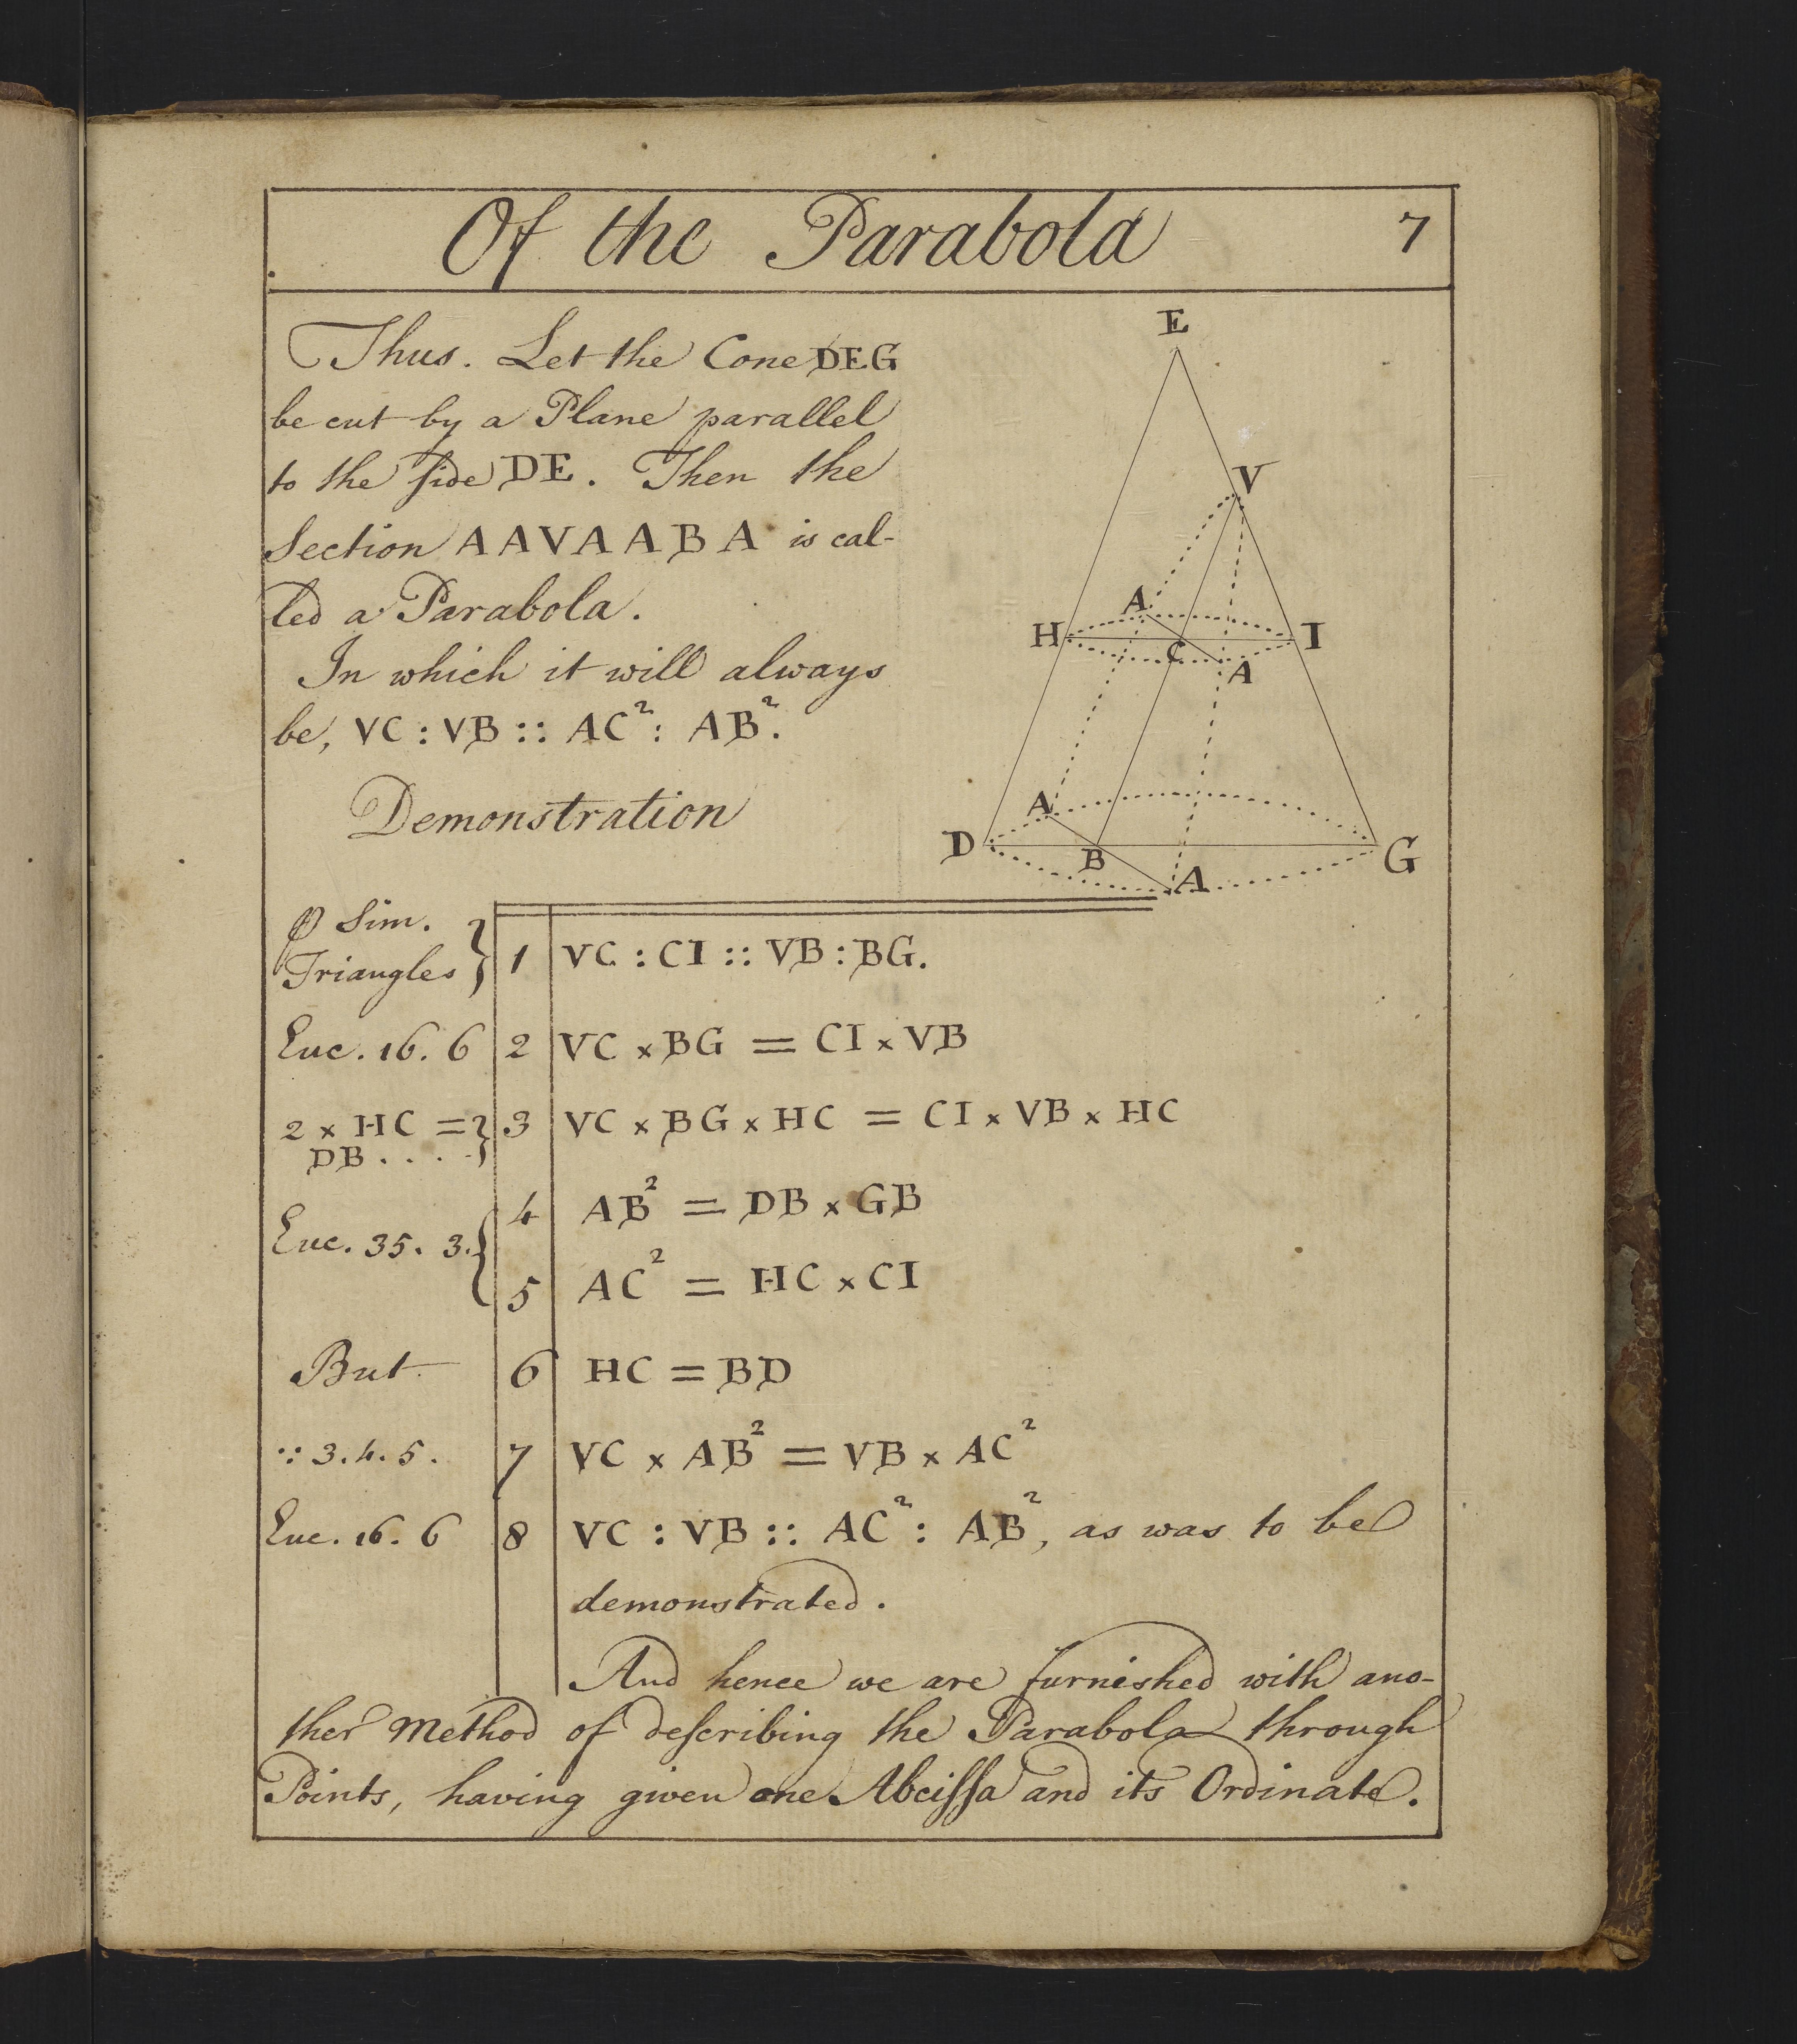 Of the Parabola 7
Thus. Let the Cone DEG
be cut by a Plane parallel
to the ſide DE. Then the
Section AAVAABA is cal-
led a Parabola.
In which it will always
be, VC : VB :: AC² : AB².
Demonstration
E
V
A
H C I
A
A
D B G
A
℗ Sim.
Triangles } 1 VC : CI :: VB : BG.
Euc. 16. 6 2 VC × BG = CI × VB
2 × HC = } 3 VC × BG × HC = CI × VB × HC
DB . . . .
4 AB² = DB × GB
Euc. 35. 3. {
5 AC² = HC × CI
But 6 HC = BD
∵ 3. 4. 5. 7 VC × AB² = VB × AC²
Euc. 16. 6 8 VC : VB :: AC² : AB², as was to be
demonstrated.
And hence we are furnished with ano-
ther Method of deſcribing the Parabola through
Points, having given one Abciſſa and its Ordinate.